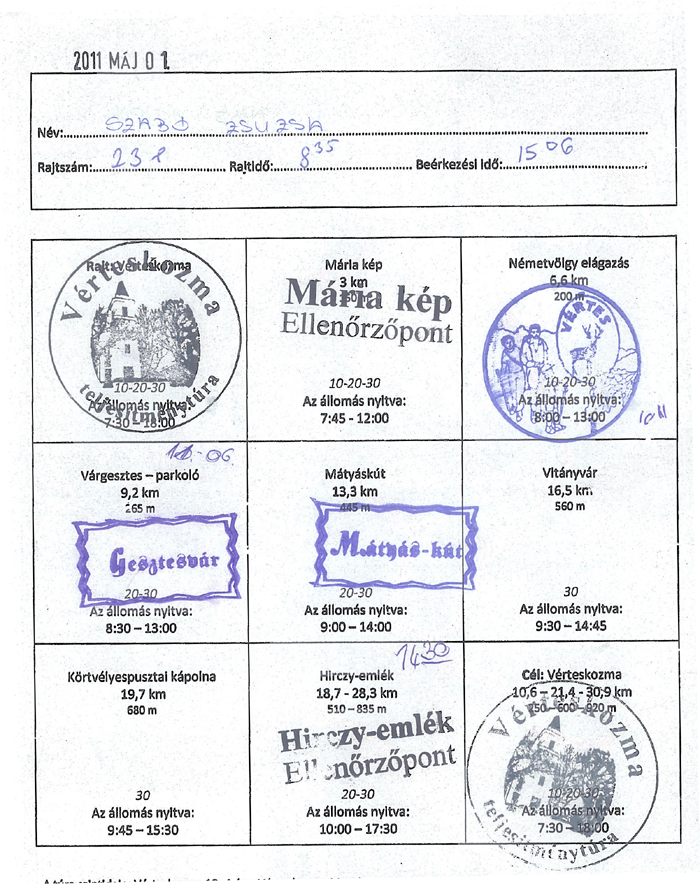 2011 MÁJ 01.
Név: SZABÓ ZSUZSA
Rajtszám: 231 Rajtidő: 8 35 Beérkezési idő: 15 06
Rajt: Vérteskozma
Vérteskozma
teljesítménytúra
10-20-30
Az állomás nyitva:
7:30 – 18:00
Mária kép
3 km
Mária kép
Ellenőrzőpont
10-20-30
Az állomás nyitva:
7:45 - 12:00
Németvölgy elágazás
6,6 km
200 m
VÉRTES
10-20-30
Az állomás nyitva:
8:00 – 13:00
10 11
11-06.
Várgesztes – parkoló
9,2 km
265 m
Gesztesvár
20-30
Az állomás nyitva:
8:30 – 13:00
Mátyáskút
13,3 km
445 m
Mátyás-kút
20-30
Az állomás nyitva:
9:00 – 14:00
Vitányvár
16,5 km
560 m
30
Az állomás nyitva:
9:30 – 14:45
Körtvélyespusztai kápolna
19,7 km
680 m
30
Az állomás nyitva:
9:45 – 15:30
14 30
Hirczy-emlék
18,7 - 28,3 km
510 – 835 m
Hirczy-emlék
Ellenőrzőpont
20-30
Az állomás nyitva:
10:00 – 17:30
Cél: Vérteskozma
10,6 – 21,4 - 30,9 km
350 – 600 – 920 m
Vérteskozma
teljesítménytúra
10-20-30
Az állomás nyitva:
7:30 – 18:00